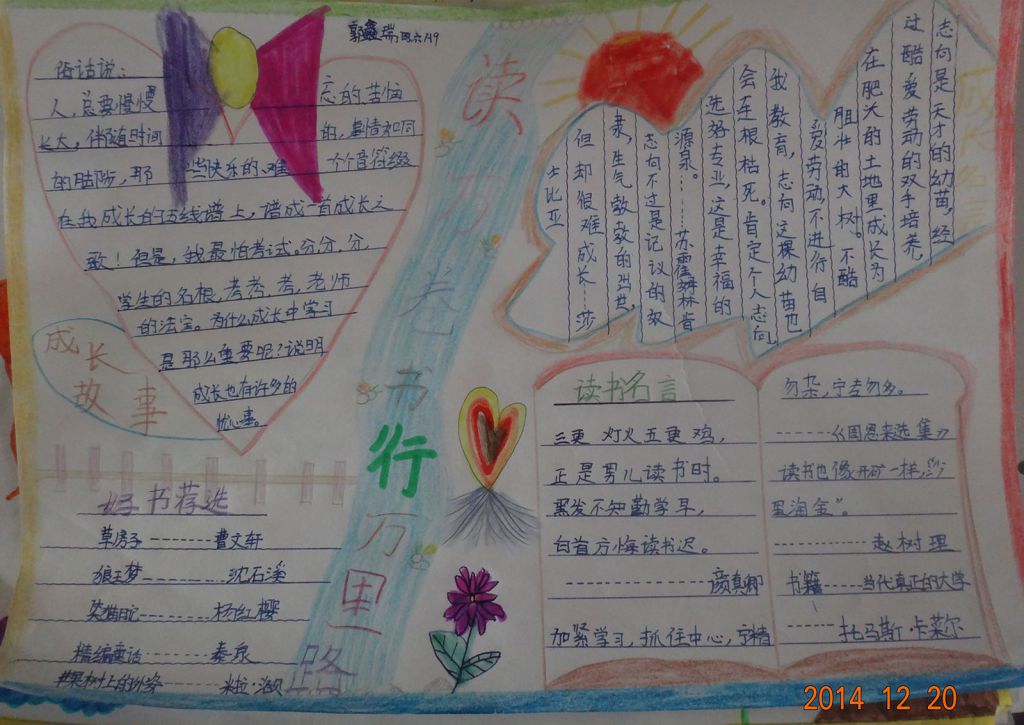 郭鑫瑞
俗话说：
人，总要慢慢
长大，伴随时间
的脚步，那
些快乐的、难
忘的、苦恼
的，事情如同
个个音符缀
在我成长的五线谱上，谱成一首成长之
歌！但是，我最怕考试。分，分，分，
学生的名根，考，考，考，老师
的法宝。为什么成长中学习
是那么重要呢？说明
成长也有许多的
忧心事。
成长
故事
好书荐选
草房子--------曹文轩
狼王梦--------沈石溪
笑猫日记------杨红樱
精编童话------秦泉
苹果树上的外婆------米拉·洛贝
读万卷书行万里路
志向是天才的幼苗，经
过酷爱劳动的双手培养，
在肥沃的土地里成长为
粗壮的大树。不酷
爱劳动，不进行自
我教育，志向这棵幼苗也
会连根枯死。肯定个人志向，
选好专业，这是幸福的
源泉。------苏霍姆林肯
志向不过是记议的奴
隶，生气勃勃的
但却很难成长------莎
士比亚
读书名言
三更灯火五更鸡，
正是男儿读书时。
黑发不知勤学早，
白首方悔读书迟。
--------颜真卿
加紧学习，抓住中心，宁精
勿杂，宁专勿多。
------《周恩来选集》
读书也像开矿一样，沙
里淘金”。
------赵树理
书籍------当代真正的大学
------托马斯·卡莱尔
2014 12 20